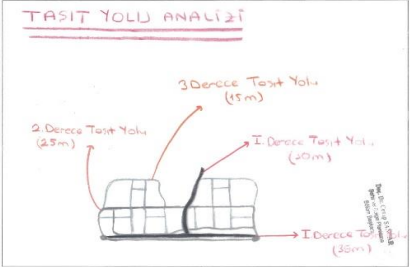 TAŞIT YOLU ANALİZİ
3.Derece Taşıt Yolu
(15m)
2.Derece Taşıt Yolu
(25m)
I.Derece Taşıt Yolu
(20m)
I Derece Taşıt Yolu
(35m)